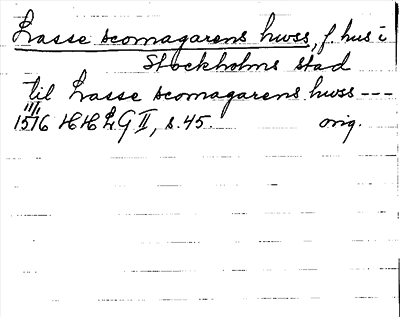 Lasse scomagarens hwss, f. hus i
Stockholms stad
til Lasse scomagarens hwss ---
11/1
1576 HHLG II, s. 45. orig.